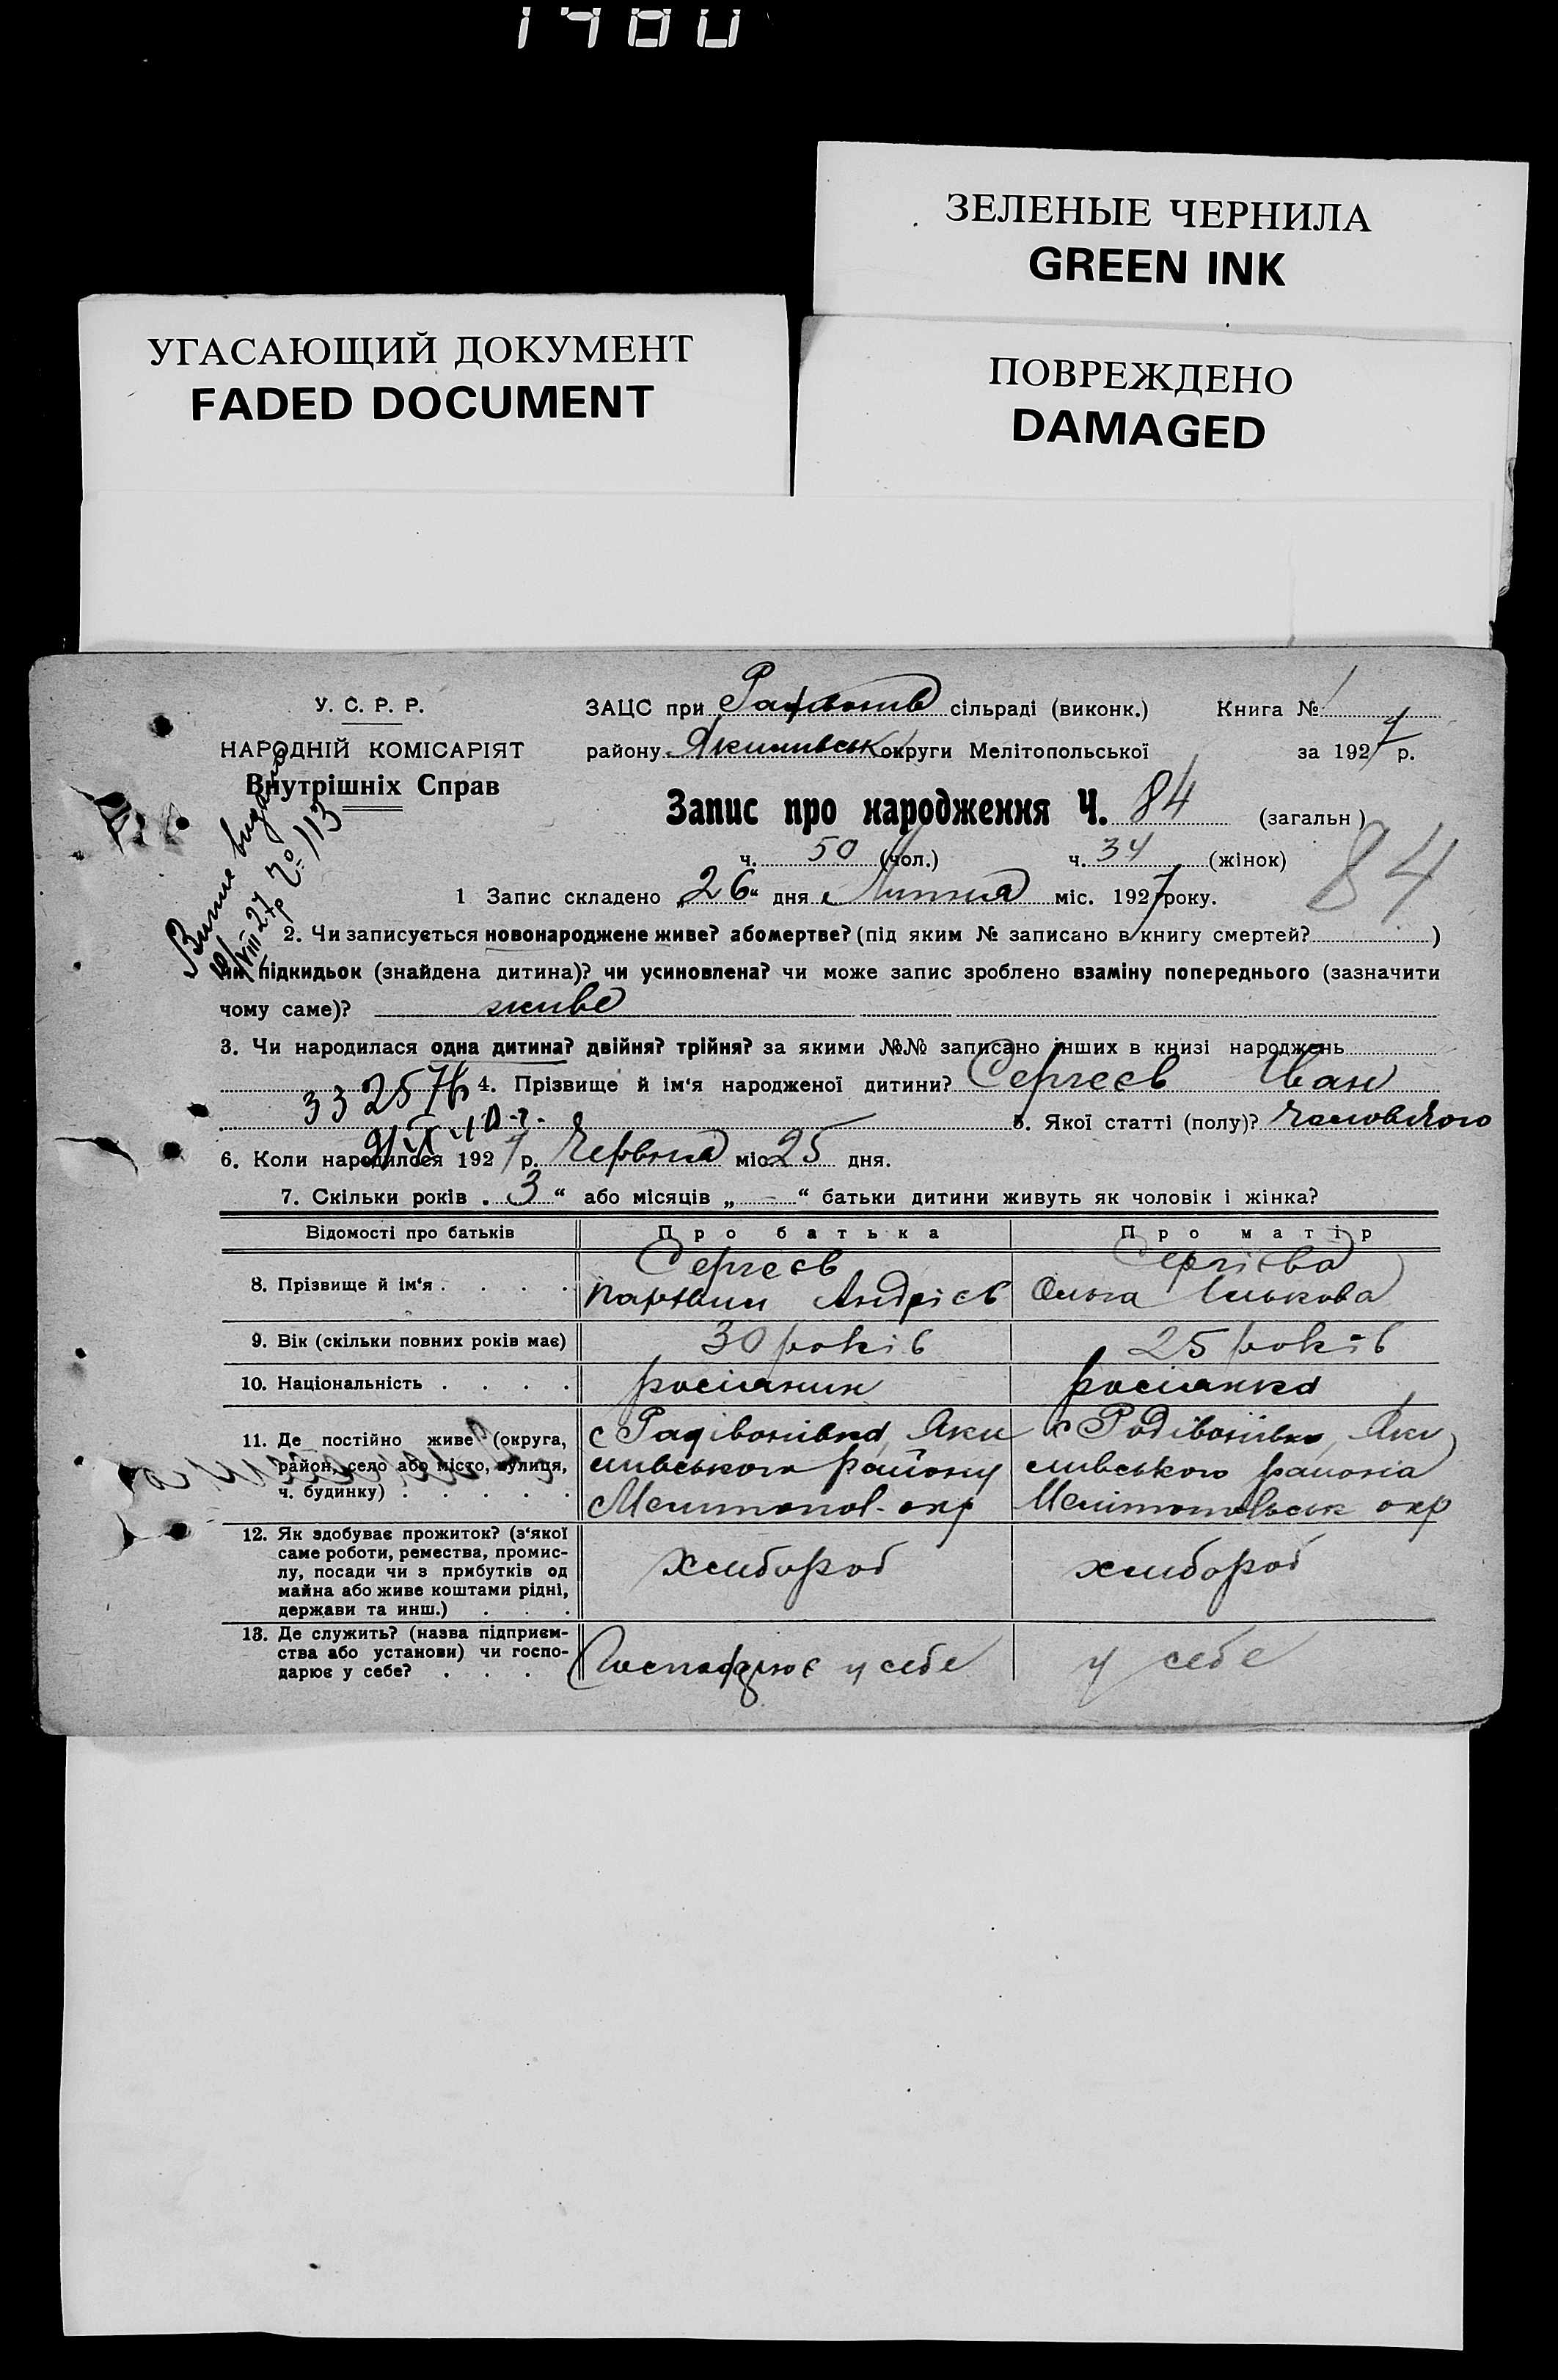 1980
ЗЕЛЕНЫЕ ЧЕРНИЛА
GREEN INK
УГАСАЮЩИЙ ДОКУМЕНТ
FADED DOCUMENT
ПОВРЕЖДЕНО
DAMAGED
У. С. Р. Р.
НАРОДНІЙ КОМІСАРІЯТ
Внутрішніх Справ
ЗАЦС при сільраді (виконк.) Книга № 1
району Якимивськ округи Мелітопольської за 1927 р.
Запис про народження Ч. 84 (загальн)
ч. 50 (чол.) ч. 34 (жінок)
84
1 Запис складено „26“ дня Липня міс. 1927 року.
2. Чи записується новонароджене живе? або мертве? (під яким № записано в книгу смертей? )
чи підкидьок (знайдена дитина)? чи усиновлена? чи може запис зроблено взаміну попереднього (зазначити
чому саме)? живе
3. Чи народилася одна дитина? двійня? трійня? за якими №№ записано інших в книзі народжень
4. Прізвище й ім‘я народженої дитини? Сергеєв Іван
5. Якої статті (полу)? чоловічого
6. Коли народилося 1927 р. Червня міс. 25 дня.
7. Скільки років „3“ або місяців „-“ батьки дитини живуть як чоловік і жінка?
Відомості про батьків Про батька Про матір
8. Прізвище й ім‘я . . . . Сергеєв Сергієва
Андрієв Ольга Ількова
9. Вік (скільки повних років має) 30 років 25 років
10. Національність . . . . росіянин росіянка
11. Де постійно живе (округа, с Радівонівка, Яки с Родівонівка, Яки
район, село або місто, вулиця, мивського району мивського района
ч. будинку) . . . . . Мелитопол. окр Мелітопольськ окр
12. Як здобуває прожиток? (з‘якої
саме роботи, ремества, промис-
лу, посади чи з прибутків од хлибороб хлибороб
майна або живе коштами рідні,
держави та инш.) . . .
13. Де служить? (назва підприєм-
ства або установи) чи госпо- Господарює у себе у себе
дарює у себе? . . . .